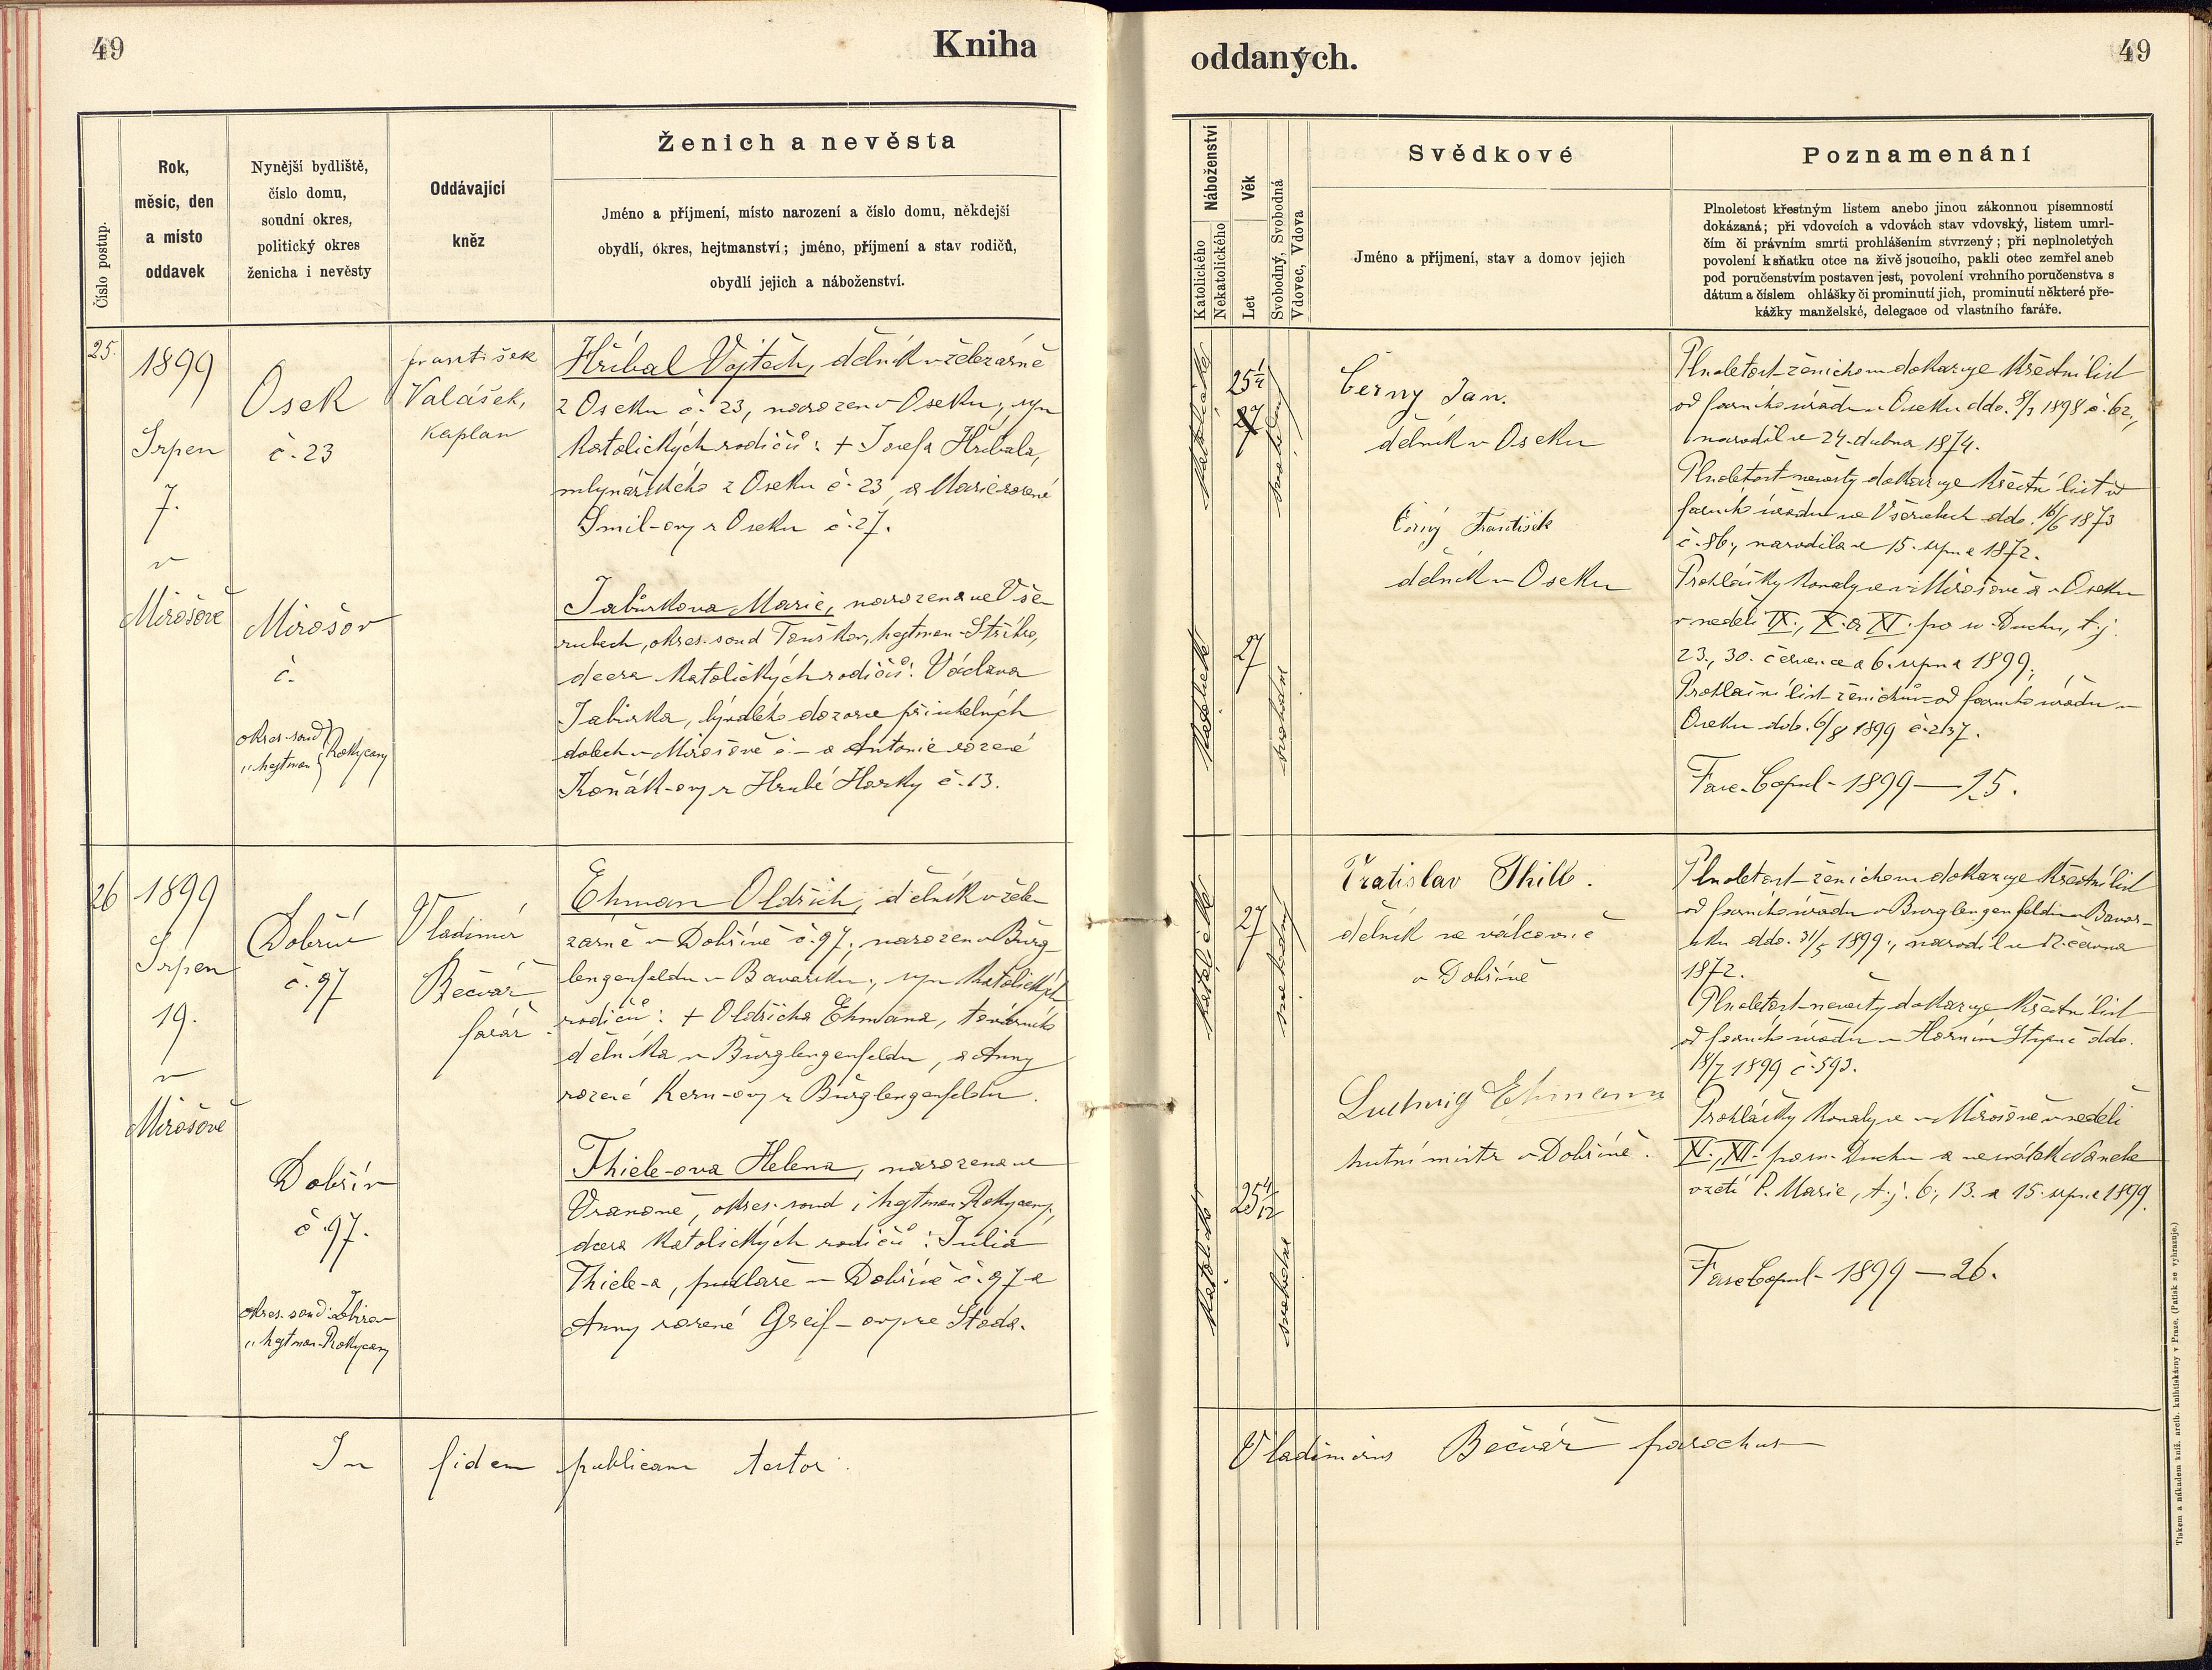 49
Kniha
oddaných.
49
Číslo postup.
Rok,
měsíc, den
a místo
oddavek
Nynější bydliště,
číslo domu,
soudní okres,
politický okres
ženicha i nevěsty
Oddávající
kněz
Ženich a nevěsta
Jméno a příjmení, místo narození a číslo domu, někdejší
obydlí, okres, hejtmanství; jméno, příjmení a stav rodičů,
obydlí jejich a náboženství.
Náboženství
Katolického
Nekatolického
Věk
Let
Svobodný, Svobodná
Vdovec, Vdova
Svědkové
Jméno a příjmení, stav a domov jejich
Poznamenání
Plnoletost křestným listem anebo jinou zákonnou písemností
dokázaná; při vdovcích a vdovách stav vdovský, listem umrl-
čím či právním smrti prohlášením stvrzený; při neplnoletých
povolení k sňatku otce na živě jsoucího, pakli otec zemřel aneb
pod poručenstvím postaven jest, povolení vrchního poručenstva s
dátum a číslem ohlášky či prominutí jich, prominutí některé pře-
kážky manželské, delegace od vlastního faráře.
25.
1899
Srpen
7.
v
Mirošově
Osek
č. 23
Mirošov
č.
okres. soud
" hejtman
Rokycany
František
Valášek,
kaplan
Hříbal Vojtěch, dělník v železárně
z Oseku č. 23, narozen v Oseku, syn
katolických rodičů: + Josefa Hříbala,
mlynářského z Oseku č. 23, a Marie rozené
Smil-ovy z Oseku č. 27.
Jabůrkova Marie, narozena ve Vše-
rubech, okres. soud Touškov, hejtman. Stříbro,
dcera katolických rodičů: Václava
Jabůrka, bývalého dozorce při uhelných
dolech v Mirošově č. – a Antonie rozené
Koňák-ovy z Hrubé Horky č. 13.
katolické
25 1/4
27
svobodný
katolické
27
svobodná
Černy Jan.
dělník v Oseku
Černý František
dělník v Oseku
Plnoletost ženichovu dokazuje křestní list
od farního úřadu v Oseku ddo. 8/7 1898 č. 62,
narodil se 24. dubna 1874.
Plnoletost nevěsty dokazuje křestní list od
farního úřadu ve Všerubech ddo. 16/6 1873
č. 86, narodila se 15. srpna 1872.
Prohlášky konaly se v Mirošově a v Oseku
v neděli IX., X. a XI. po sv. Duchu, t. j.
23., 30. července a 6. srpna 1899.
Prohlašní list ženichův od farního úřadu v
Oseku ddo. 6/8 1899 č. 237.
Fasc. Copul. 1899 — 25.
26
1899
Srpen
19.
v
Mirošově
Dobřív
č. 97
Dobřív
č 97.
okres. soud Zbirov
" hejtman. Rokycany
Vladimír
Bečvář
farář
Ehman Oldřich, dělník v žele-
zárně v Dobřívě č. 97, narozen v Burg-
lengenfeldu v Bavorsku, syn katolických
rodičů: + Oldřicha Ehmana, továrního
dělníka v Burglengenfeldu, a Anny
rozené Kern-ovy z Burglengenfeldu.
Thiele-ova Helena, narozena ve
Vranově, okres. soud i hejtman. Rokycany,
dcera katolických rodičů: Julia
Thiele-a, pudlaře v Dobřívě č. 97 a
Anny rozené Greif-ovy ze Stoda.
katolické
27
svobodný
katolické
25 4/12
svobodná
Vratislav
dělník ve válcovně
v Dobřívě
Ludwig Ehmann
hutní mistr v Dobřívě.
Plnoletost ženichovu dokazuje křestní list
od farního úřadu v Burglengenfeldu v Bavor-
sku ddo. 31/5 1899, narodil se 12. června
1872.
Plnoletost nevěsty dokazuje křestní list
od farního úřadu v Horním Stupně ddo.
18/7 1899 č. 593.
Prohlášky konaly se v Mirošově v neděli
XI., XII. po sv. Duchu a ve svátek Nanebe
vzetí P. Marie, t. j. 6., 13. a 15. srpna 1899.
Fasc Copul. 1899 — 26.
In fidem publicam testor
Vladimirus Bečvář parochus
Tiskem a nákladem kníž. arcib. knihtiskárny v Praze. (Patisk se vyhrazuje.)